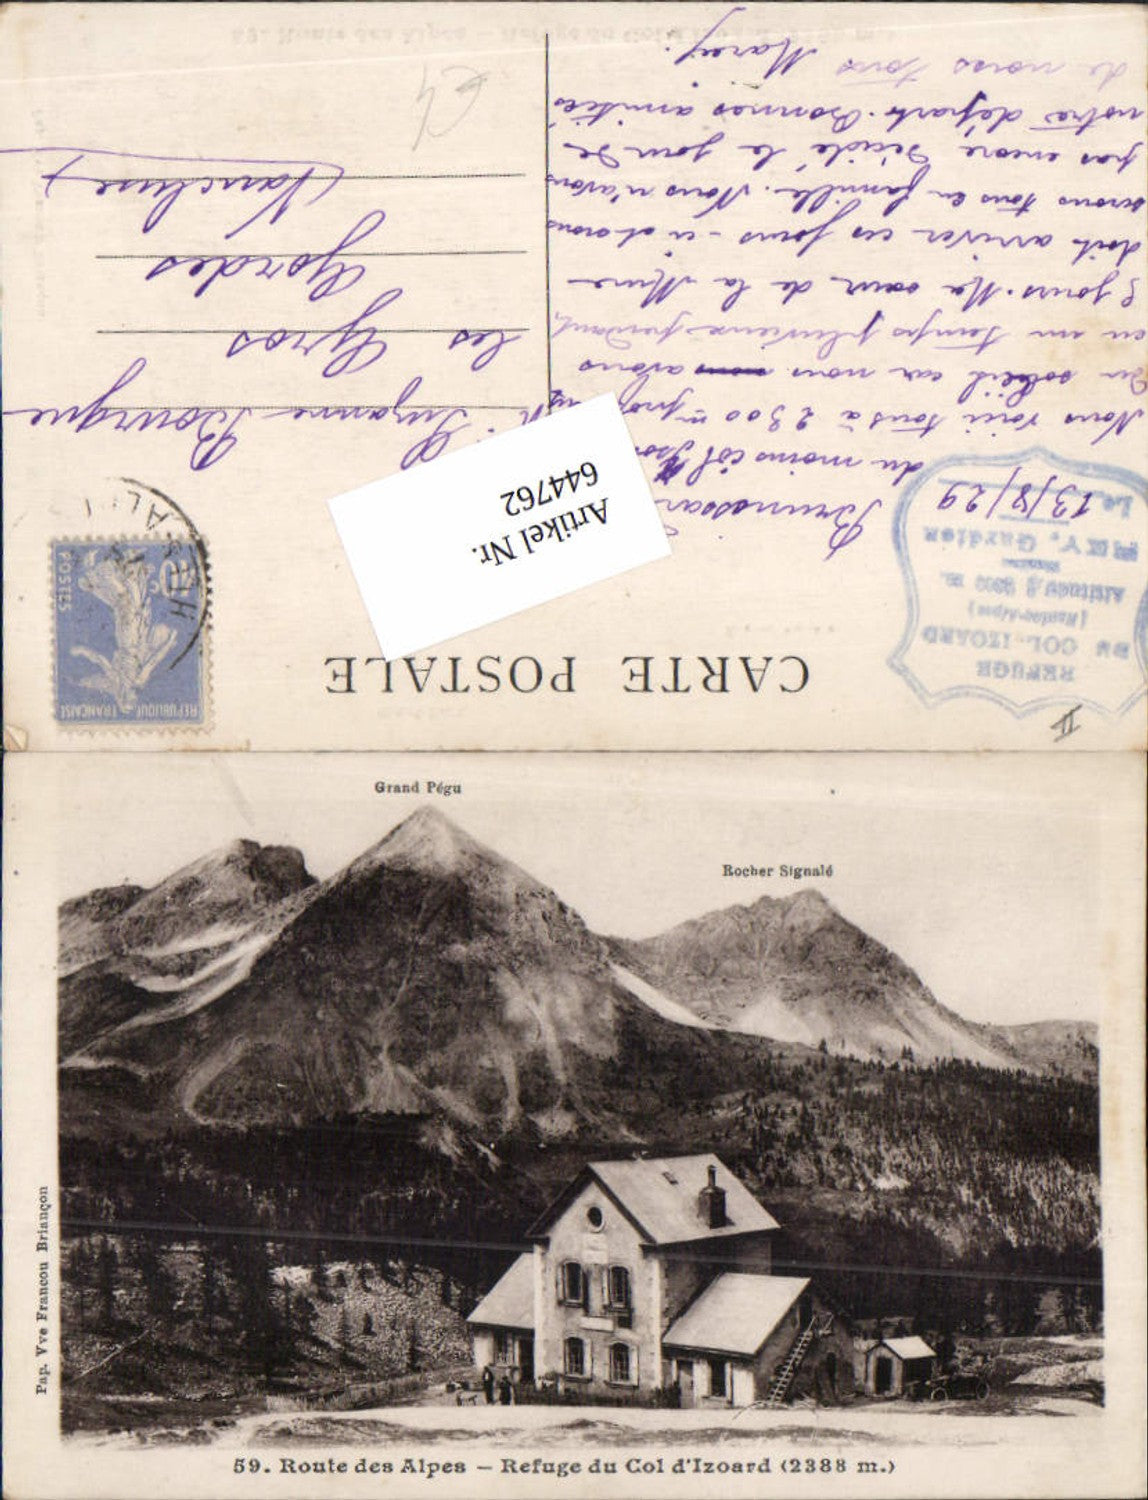 CARTE POSTALE
REFUGE
DU COL IZOARD
(Hautes-Alpes)
Altitude 2300 m.
V. Gardien
Le
13/8/29
REPUBLIQUE FRANÇAISE
POSTES
Artikel Nr.
644762
du moins col
Nous voici tous à 2300 m
du soleil car nous avons
eu un temps pluvieux pendant
8 jours. Ma sœur de la Mure
doit arriver ces jours-ci et
serons tous en famille. Nous n'avons
pas encore décidé le jour de
notre départ. Bonnes amitiés
de nous tous Marcy.
Suzanne Bourgue
les Gros
Gordes
(Vaucluse)
€4
II
Grand Pégu
Rocher Signalé
Pap. Vve Francou Briançon
59. Route des Alpes — Refuge du Col d'Izoard (2388 m.)